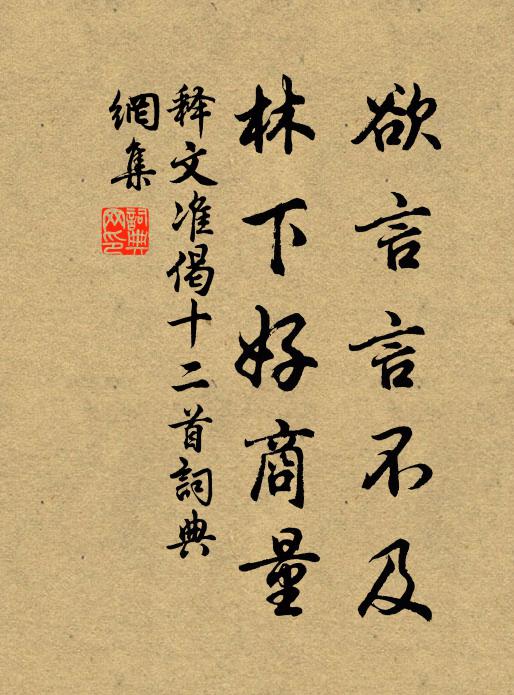 欲言言不及
林下好商量
释文准偈十二首詞典
網集
詞典
网印